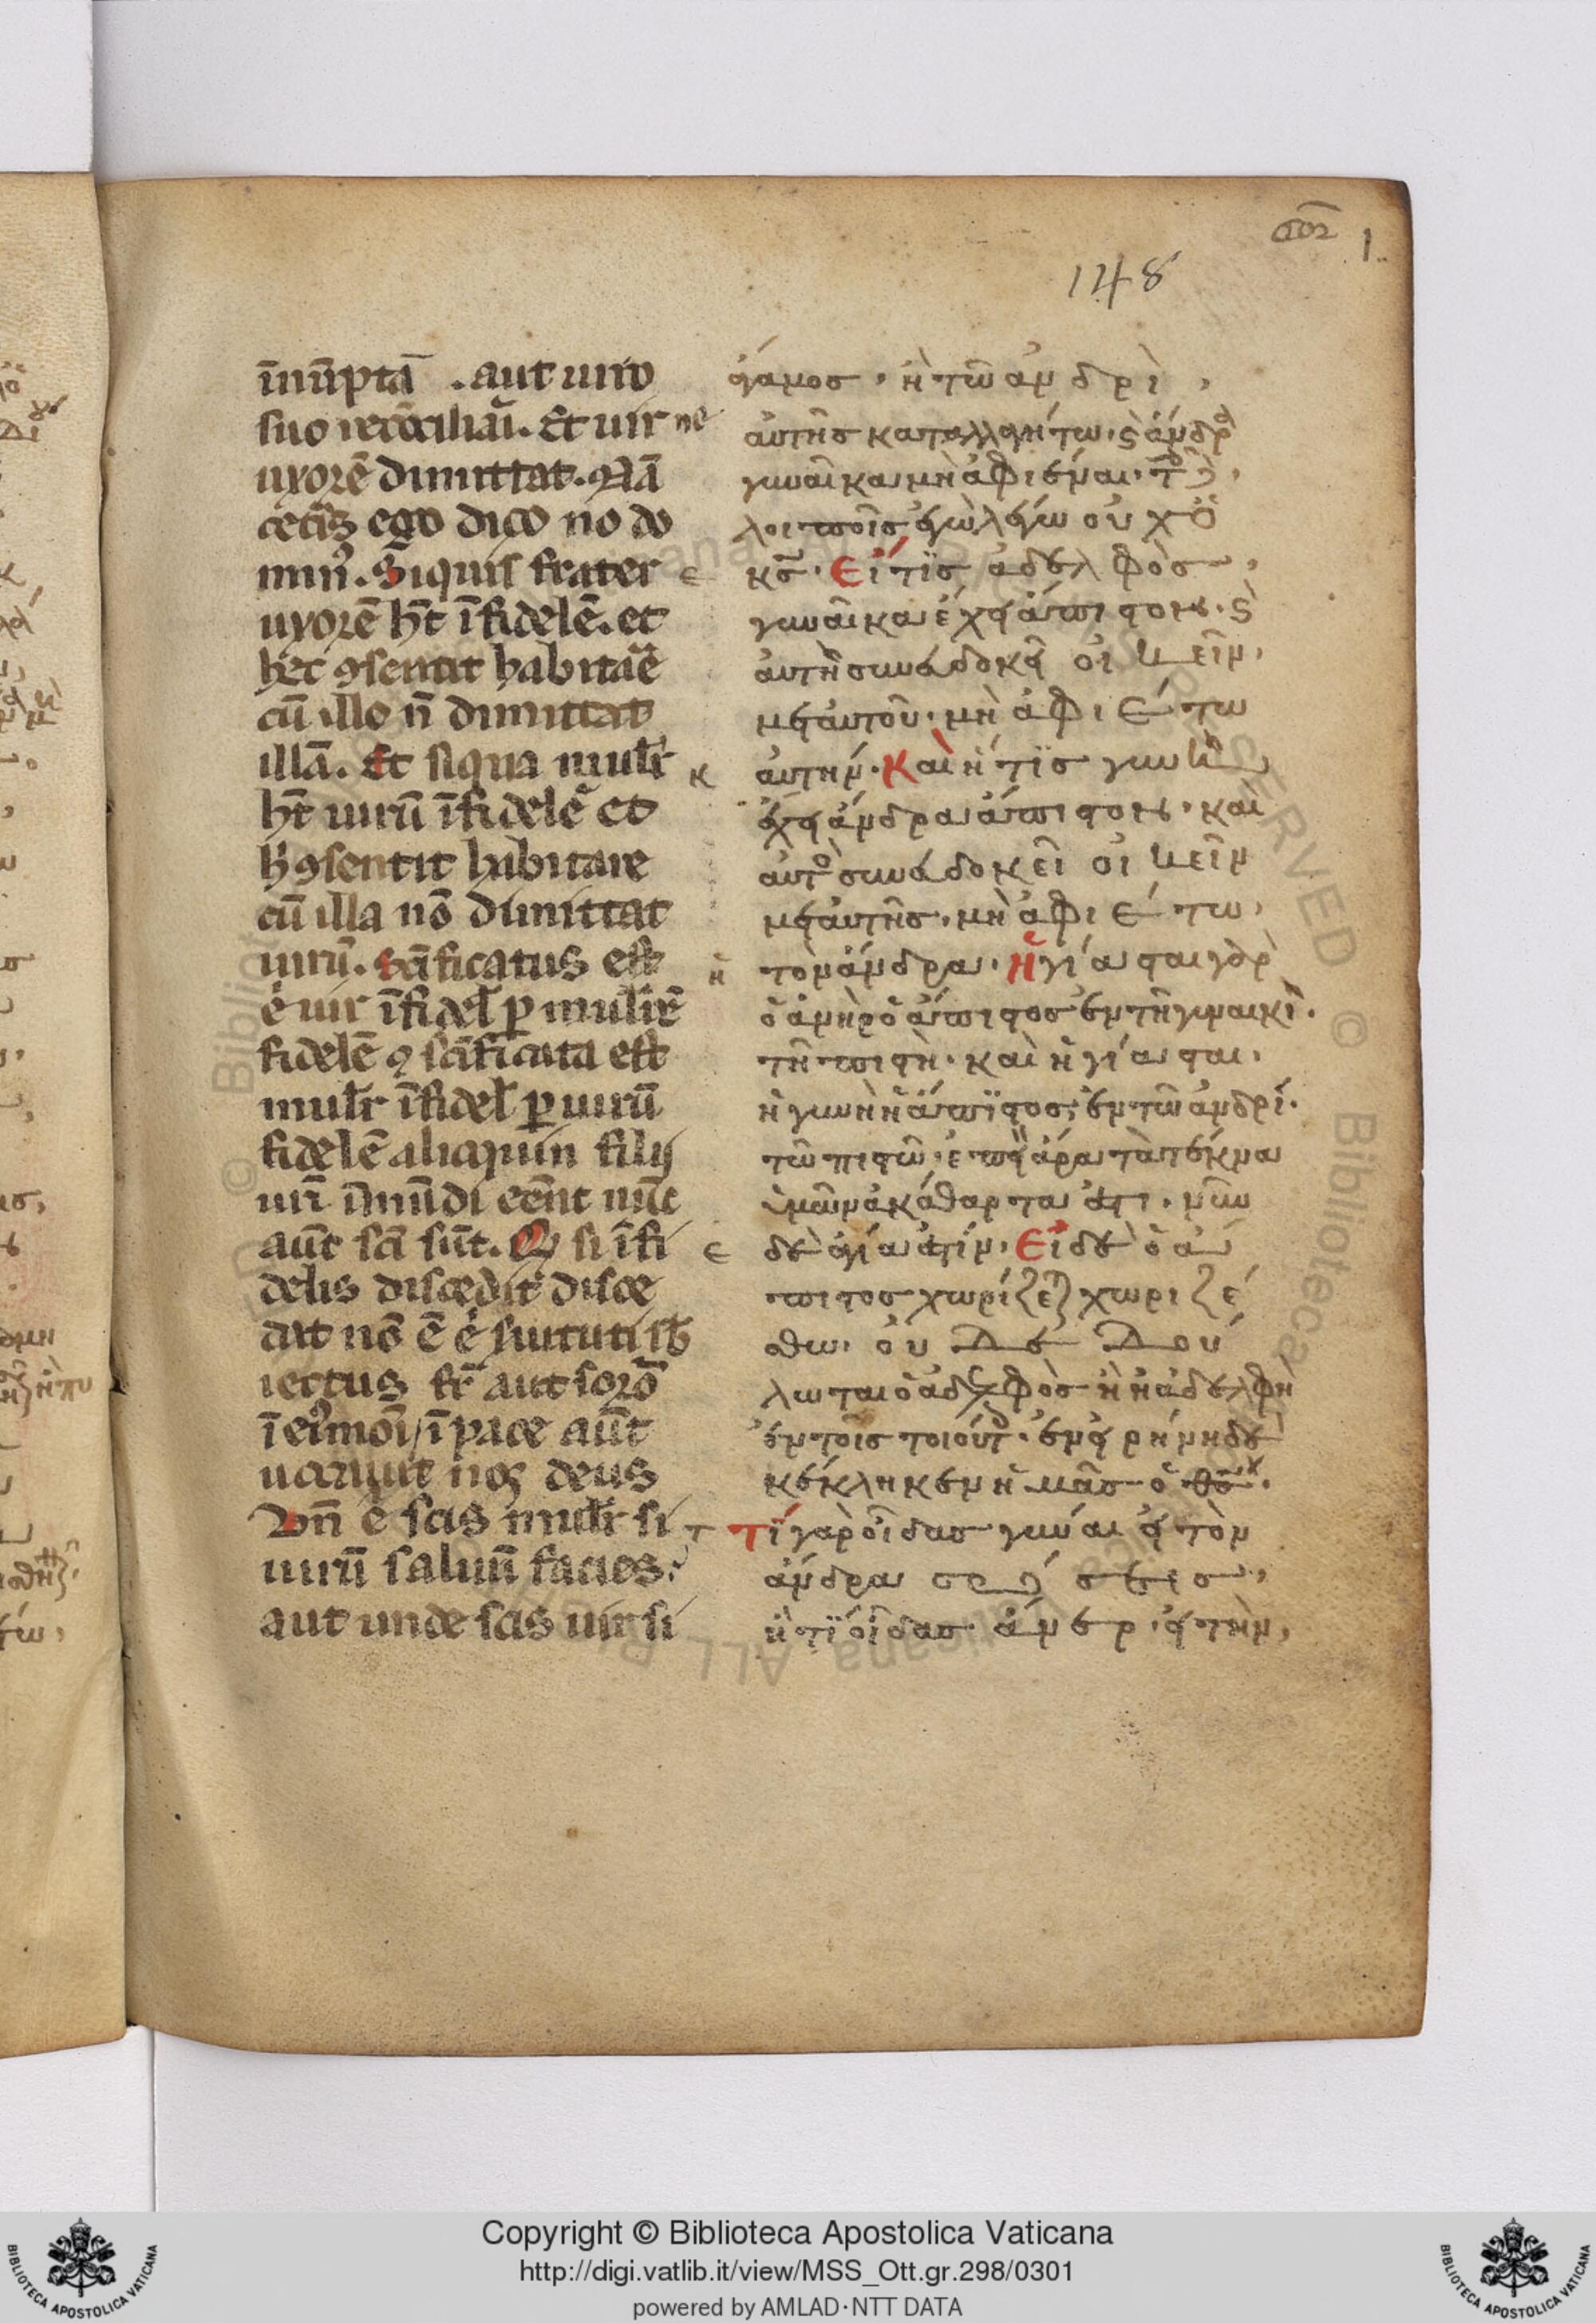 148
1
īnūptā . aut uiro
suo recōciliari. Et uir ne
uxorē dimittat. Nā
cet̄is ego dico no do
min9. Siquis frater
uxorē ht̄ īfidelē. et
hec ꝯsentit habitare
cū illo n̄ dimittat
illā. Et siqua mulr̄
ht̄ uirū īfidelē et
h ꝯsentit habitare
cū illa nō dimittat
uirū. Scīficatus est
ē uir īfidel̄ ꝑ mulirē
fidelē ⁊ scīficata est
mulr̄ īfidel̄ ꝑ uirū
fidelē alioquin filij
uri īmūdi eēnt nūc
aūt scī sūt. Q si īfi
delis discedit disce
dat nō ē ē seruituti sb
iectus fr̄ aut soror
ī ei9moi, ī pace aūt
uocauit nos deus
Vn̄ ē scis mulr̄ si
uirū saluū facies.
aut unde scis uir si
γάμοσ · ἢ τῶ ἀνδρὶ,
αὐτῆσ καταλλαγήτω · ϛ̀ ἄνδρα
γυναῖκα μὴ ἀφιέναι · τοῖσ δὲ
λοιποῖσ ἐγὼ λέγω οὐχ ὁ
κσ̄ · Εἴ τϊσ ἀδελφὸσ,
γυναῖκα ἔχει ἄπιστον · ϛ̀
αὐτὴ συνευδοκεῖ οἰκεῖν,
μετ αὐτοῦ · μὴ ἀφιέτω
αὐτήν · Καὶ ἥ τϊσ γυνὴ
ἔχει ἄνδρα ἄπιστον · καὶ
αὐτὸσ συνευδοκεῖ οἰκεῖν
μετ αὐτῆσ · μὴ ἀφιέτω,
τὸν ἄνδρα · ἡγίασται γὰρ
ὁ ἀνὴρ ὁ ἄπιστοσ ἐν τῆ γυναικὶ ·
τῆ πιστῆ · καὶ ἡγίασται ·
ἡ γυνὴ ἡ ἄπϊστοσ, ἐν τῶ ἀνδρί ·
τῶ πιστῶ · ἐπεὶ ἄρα τὰ τέκνα
ὑμῶν ἀκάθαρτα ἐστι · νῦν
δὲ ἅγία ἐστίν · Εἰ δὲ ὁ ἄ
πιτοσ χωρίζεται χωριζέ
σθω · οὐ δε δού
λωται ὁ ἀδελφὸσ ἢ ἡ ἀδελφὴ
ἐν τοῖσ τοιούτοισ · ἐν εἰρήνη δὲ
κέκληκεν ἡμᾶσ ὁ θσ̄ ·
Τί γὰρ οἶδασ γύναι εἰ τὸν
ἄνδρα σώσεισ,
ἢ τί οἶδασ ἄνερ · εἰ τὴν,
Copyright © Biblioteca Apostolica Vaticana
http://digi.vatlib.it/view/MSS_Ott.gr.298/0301
powered by AMLAD·NTT DATA
BIBLIOTECA APOSTOLICA VATICANA
BIBLIOTECA APOSTOLICA VATICANA